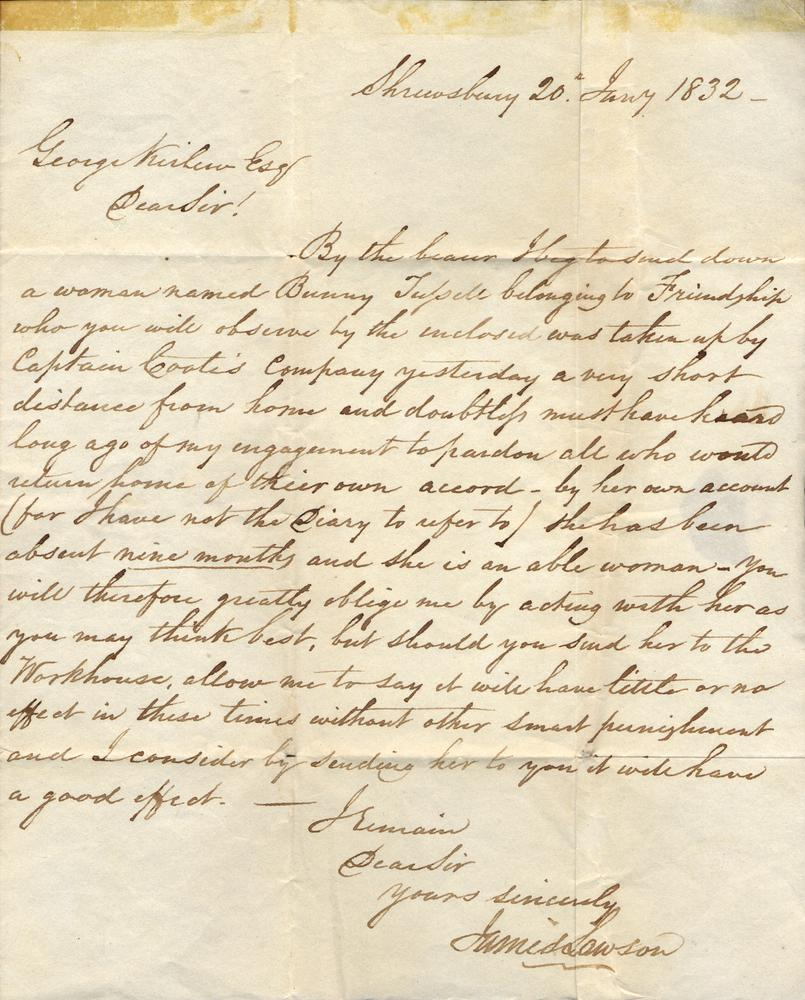 Shrewsbury 20th Jany 1832 –
George Kirlew Esqr
Dear Sir!
By the bearer I beg to send down
a woman named Bunny Tussell belonging to Friendship
who you will observe by the enclosed was taken up by
Captain Coote's Company yesterday a very short
distance from home and doubtless must have heard
long ago of my engagement to pardon all who would
return home of their own accord – by her own account
(for I have not the Diary to refer to) she has been
absent nine months and she is an able woman – You
will therefore greatly oblige me by acting with her as
you may think best, but should you send her to the
Workhouse, allow me to say it will have little or no
effect in these times without other smart punishment
and I consider by sending her to you it will have
a good effect. —
I remain
Dear Sir
yours sincerely
James Lawson